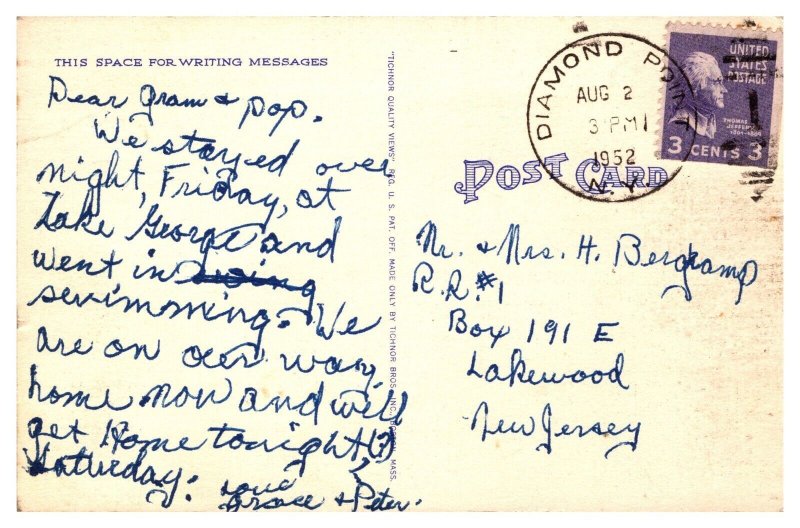 THIS SPACE FOR WRITING MESSAGES
Dear Gram & Pop.
We stayed over
night, Friday, at
Lake George and
went in swimming
swimming. We
are on our way
home now and will
get home tonight, (?)
Saturday.
Love
Grace & Peter.
"TICHNOR QUALITY VIEWS" REG. U. S. PAT. OFF. MADE ONLY BY TICHNOR BROS., INC., BOSTON, MASS.
DIAMOND POINT
AUG 2
3 PM
1952
N. Y.
UNITED
STATES
POSTAGE
THOMAS
JEFFERSON
1801-1809
3 CENTS 3
POST CARD
Mr. & Mrs. H. Bergkamp
R.R. #1
Box 191 E
Lakewood
New Jersey